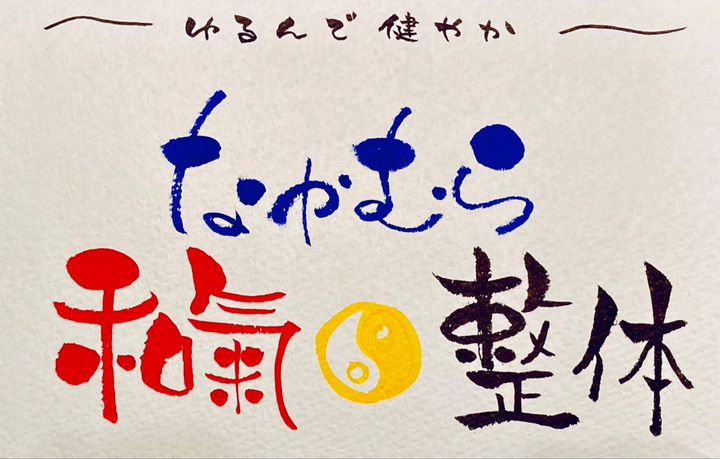 〜ゆるんで健やか〜
なかむら
和氣整体